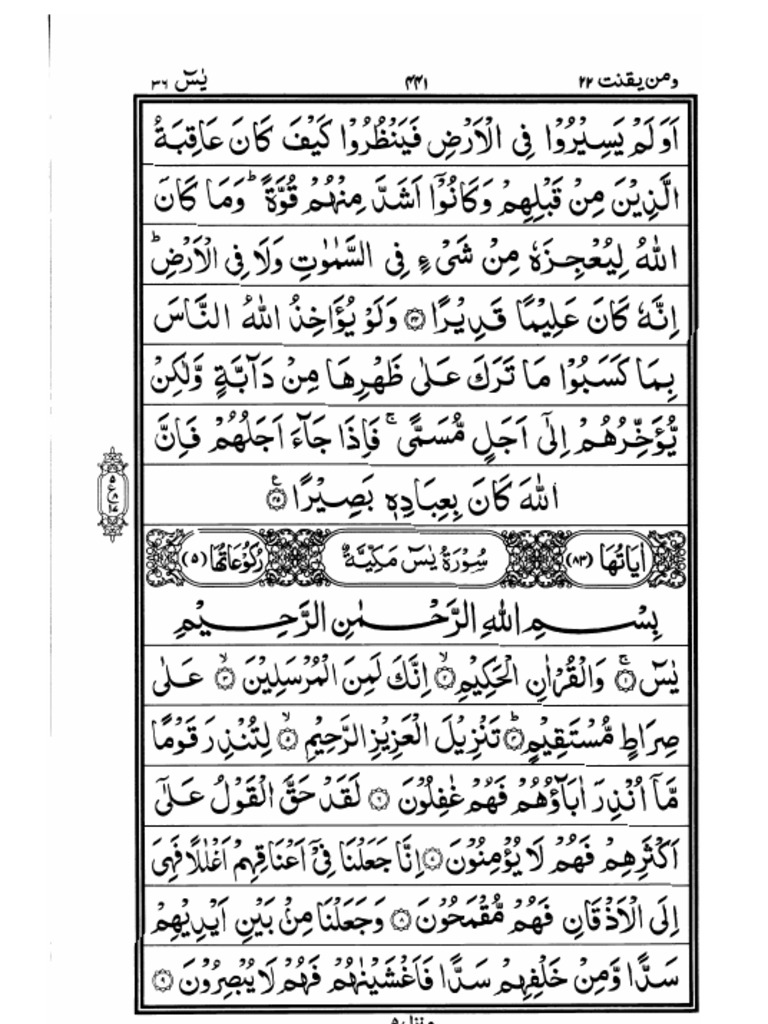 ومن يقنت ٢٢ ٤٤١ يٰسٓ ٣٦
اَوَلَمْ يَسِيْرُوْا فِى الْاَرْضِ فَيَنْظُرُوْا كَيْفَ كَانَ عَاقِبَةُ
الَّذِيْنَ مِنْ قَبْلِهِمْ وَكَانُوْٓا اَشَدَّ مِنْهُمْ قُوَّةً ؕ وَمَا كَانَ
اللّٰهُ لِيُعْجِزَهٗ مِنْ شَىْءٍ فِى السَّمٰوٰتِ وَلَا فِى الْاَرْضِ ؕ
اِنَّهٗ كَانَ عَلِيْمًا قَدِيْرًا ۝٤٤ وَلَوْ يُؤَاخِذُ اللّٰهُ النَّاسَ
بِمَا كَسَبُوْا مَا تَرَكَ عَلٰى ظَهْرِهَا مِنْ دَآبَّةٍ وَّلٰكِنْ
يُّؤَخِّرُهُمْ اِلٰٓى اَجَلٍ مُّسَمًّى ۚ فَاِذَا جَآءَ اَجَلُهُمْ فَاِنَّ
اللّٰهَ كَانَ بِعِبَادِهٖ بَصِيْرًا ۝٤٥
ع ٥ ٨ ١٧
اٰيَاتُهَا (٨٣) سُوْرَةُ يٰسٓ مَكِّيَّةٌ رُكُوْعَاتُهَا (٥)
بِسْمِ اللّٰهِ الرَّحْمٰنِ الرَّحِيْمِ
يٰسٓ ۝١ ۚ وَالْقُرْاٰنِ الْحَكِيْمِ ۝٢ ۙ اِنَّكَ لَمِنَ الْمُرْسَلِيْنَ ۝٣ ۙ عَلٰى
صِرَاطٍ مُّسْتَقِيْمٍ ۝٤ ؕ تَنْزِيْلَ الْعَزِيْزِ الرَّحِيْمِ ۝٥ ۙ لِتُنْذِرَ قَوْمًا
مَّآ اُنْذِرَ اٰبَآؤُهُمْ فَهُمْ غٰفِلُوْنَ ۝٦ لَقَدْ حَقَّ الْقَوْلُ عَلٰٓى
اَكْثَرِهِمْ فَهُمْ لَا يُؤْمِنُوْنَ ۝٧ اِنَّا جَعَلْنَا فِىْٓ اَعْنَاقِهِمْ اَغْلٰلًا فَهِىَ
اِلَى الْاَذْقَانِ فَهُمْ مُّقْمَحُوْنَ ۝٨ وَجَعَلْنَا مِنْۢ بَيْنِ اَيْدِيْهِمْ
سَدًّا وَّمِنْ خَلْفِهِمْ سَدًّا فَاَغْشَيْنٰهُمْ فَهُمْ لَا يُبْصِرُوْنَ ۝٩
منزل ٥